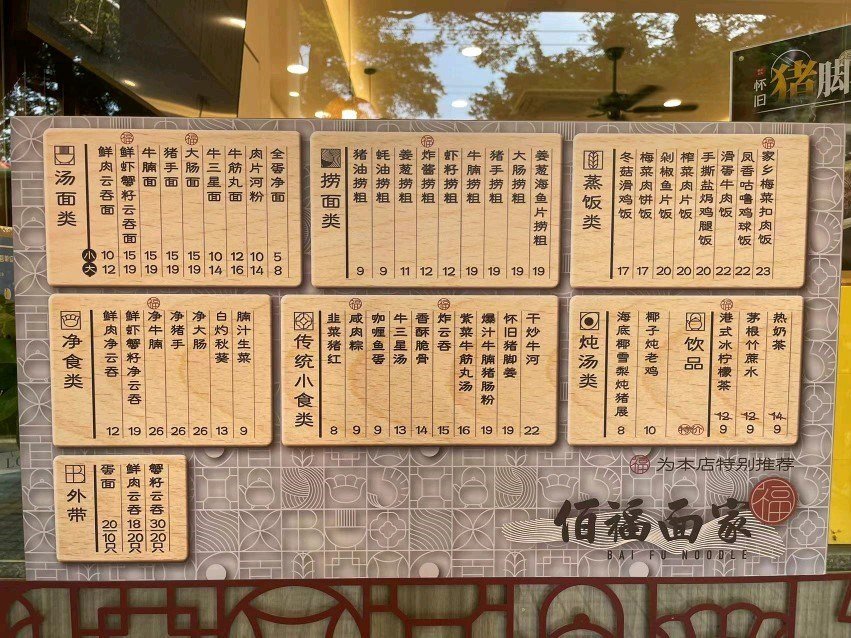 怀旧
猪脚
汤面类
小
大
鲜肉云吞面 10 12
福
鲜虾蟹籽云吞面 15 19
牛腩面 15 19
猪手面 15 19
福
大肠面 15 19
牛三星面 10 14
牛筋丸面 12 16
肉片河粉 10 14
全蛋净面 5 8
捞面类
猪油捞粗 9
蚝油捞粗 9
姜葱捞粗 11
福
炸酱捞粗 12
虾籽捞粗 12
牛腩捞粗 19
猪手捞粗 19
大肠捞粗 19
姜葱海鱼片捞粗 19
蒸饭类
冬菇滑鸡饭 17
梅菜肉饼饭 17
剁椒鱼片饭 20
榨菜肉片饭 20
手撕盐焗鸡腿饭 20
滑蛋牛肉饭 22
凤香咕噜鸡球饭 22
福
家乡梅菜扣肉饭 23
净食类
鲜肉净云吞 12
鲜虾蟹籽净云吞 19
福
净牛腩 26
净猪手 26
净大肠 26
白灼秋葵 13
腩汁生菜 9
传统小食类
韭菜猪红 8
福
咸肉粽 9
咖喱鱼蛋 9
牛三星汤 13
香酥脆骨 14
福
炸云吞 15
紫菜牛筋丸汤 16
爆汁牛腩猪肠粉 19
怀旧猪脚姜 19
干炒牛河 22
炖汤类
海底椰雪梨炖猪展 8
椰子炖老鸡 10
饮品
特价
福
港式冰柠檬茶 12 9
茅根竹蔗水 12 9
热奶茶 14 9
外带
蛋面 20 10只
鲜肉云吞 18 20只
蟹籽云吞 30 20只
福 为本店特别推荐
佰福面家 福
BAI FU NOODLE